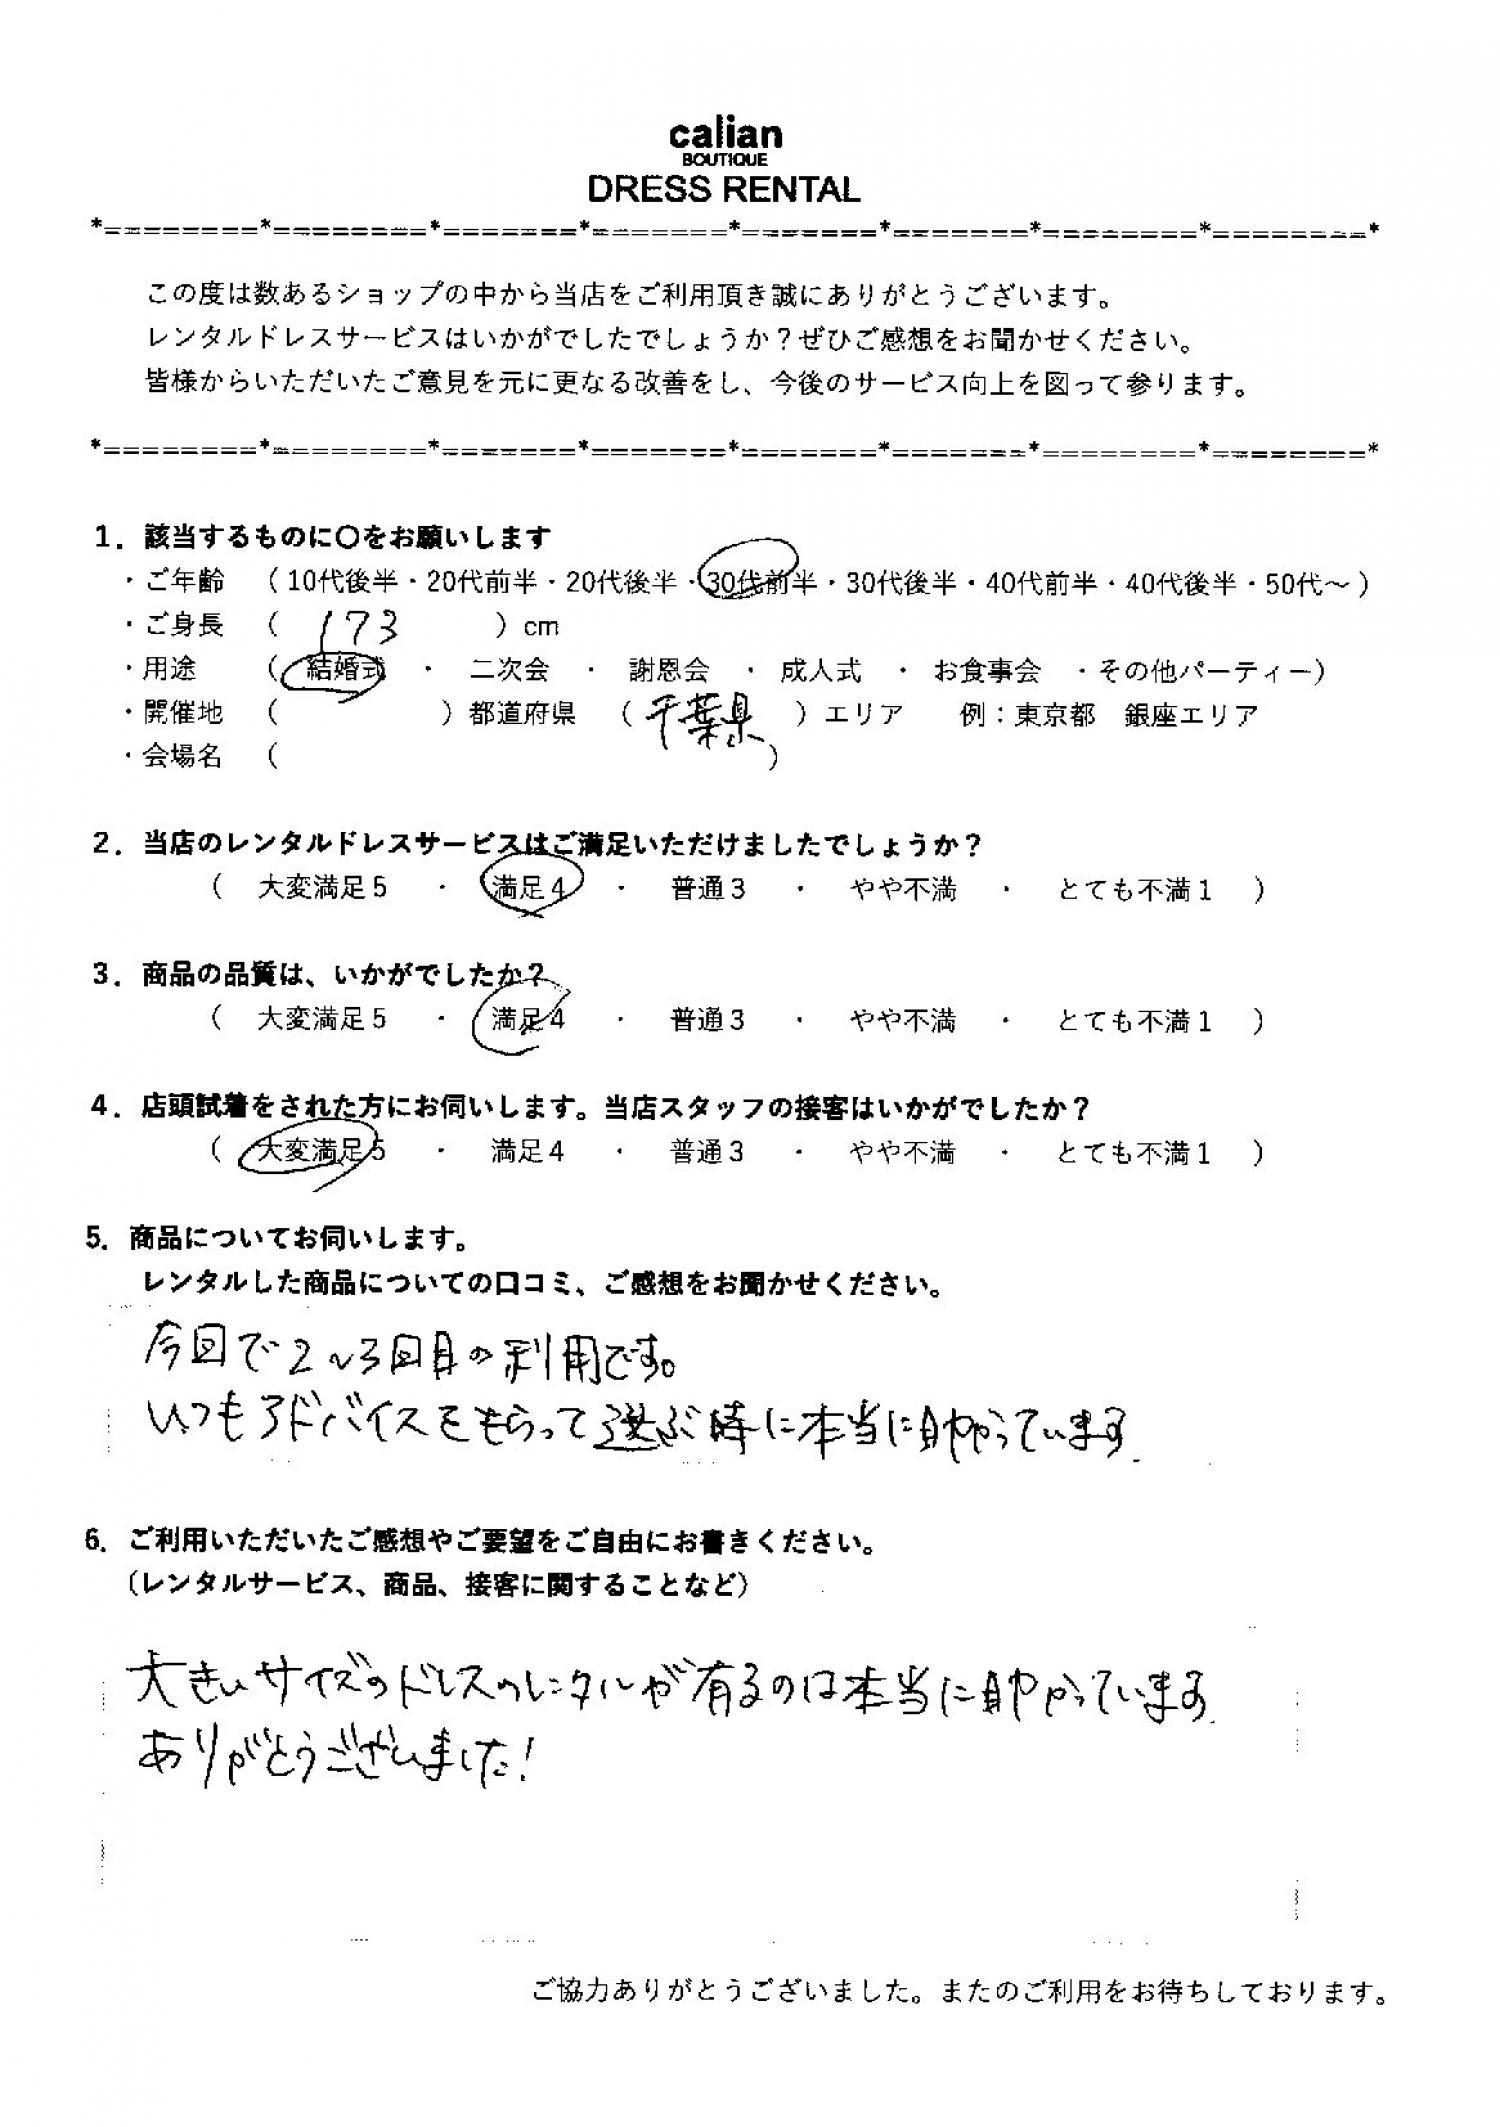 calian
BOUTIQUE
DRESS RENTAL
*========*========*=======*=======*=======*=======*========*========*
この度は数あるショップの中から当店をご利用頂き誠にありがとうございます。
レンタルドレスサービスはいかがでしたでしょうか？ぜひご感想をお聞かせください。
皆様からいただいたご意見を元に更なる改善をし、今後のサービス向上を図って参ります。
*========*========*=======*=======*=======*=======*========*========*
1．該当するものに〇をお願いします
・ご年齢 （10代後半・20代前半・20代後半・30代前半・30代後半・40代前半・40代後半・50代～）
・ご身長 （ 173 ）cm
・用途 （ 結婚式 ・ 二次会 ・ 謝恩会 ・ 成人式 ・ お食事会 ・その他パーティー）
・開催地 （ ）都道府県 （ 千葉県 ）エリア 例：東京都 銀座エリア
・会場名 （ ）
2．当店のレンタルドレスサービスはご満足いただけましたでしょうか？
（ 大変満足5 ・ 満足4 ・ 普通3 ・ やや不満 ・ とても不満1 ）
3．商品の品質は、いかがでしたか？
（ 大変満足5 ・ 満足4 ・ 普通3 ・ やや不満 ・ とても不満1 ）
4．店頭試着をされた方にお伺いします。当店スタッフの接客はいかがでしたか？
（ 大変満足5 ・ 満足4 ・ 普通3 ・ やや不満 ・ とても不満1 ）
5．商品についてお伺いします。
レンタルした商品についての口コミ、ご感想をお聞かせください。
今回で2～3回目の利用です。
いつもアドバイスをもらって選ぶ時に本当に助かっています.
6．ご利用いただいたご感想やご要望をご自由にお書きください。
（レンタルサービス、商品、接客に関することなど）
大きいサイズのドレスのレンタルが有るのは本当に助かっています.
ありがとうございました！
ご協力ありがとうございました。またのご利用をお待ちしております。